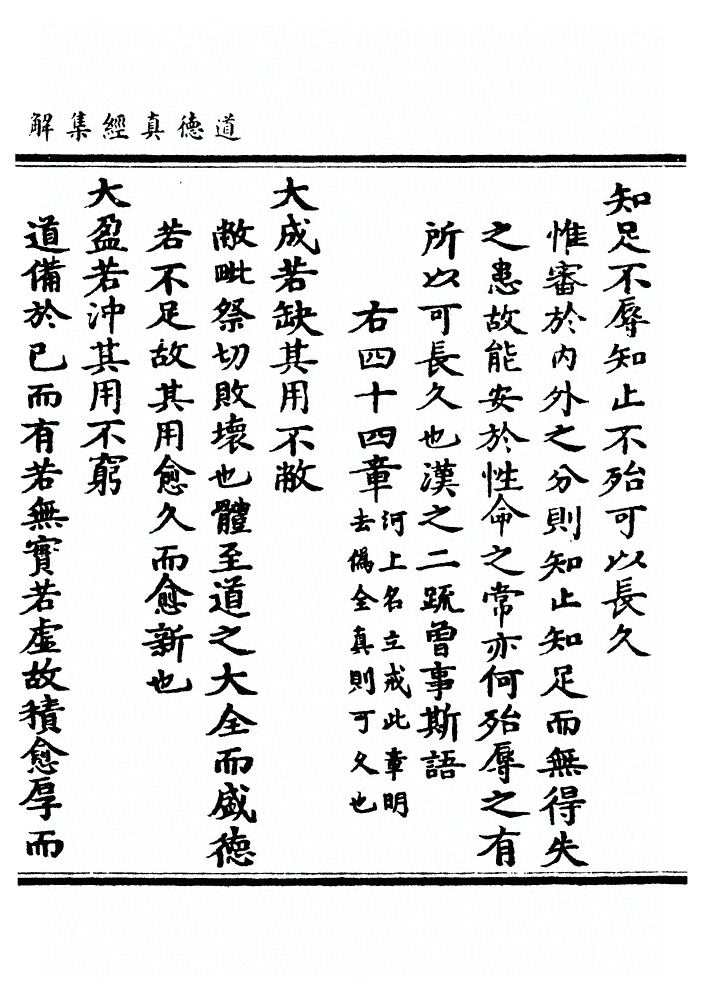 道德真經集解
知足不辱知止不殆可以長久
惟審於內外之分則知止知足而無得失
之患故能安於性命之常亦何殆辱之有
所以可長久也漢之二疏曾事斯語
右四十四章河上名立戒此章明
去僞全真則可久也
大成若缺其用不敝
敝毗祭切敗壞也體至道之大全而盛德
若不足故其用愈久而愈新也
大盈若沖其用不窮
道備於已而有若無實若虛故積愈厚而